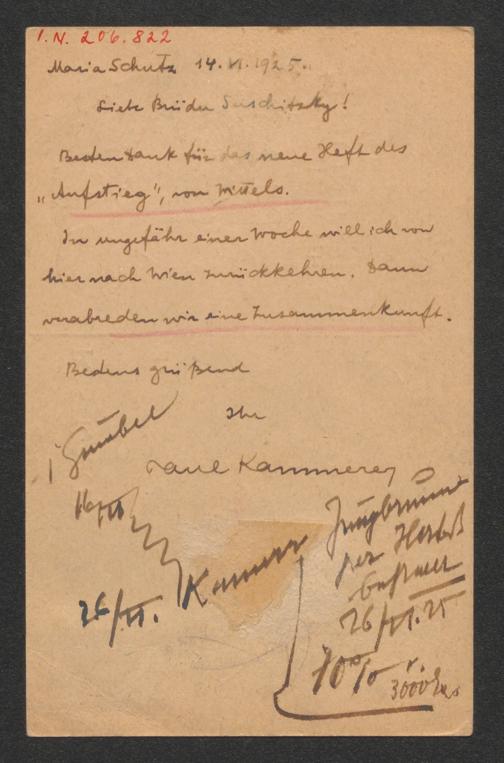 I.N. 206.822
Maria Schutz 14.VI.1925.
Liebe Brüder Suschitzky!
Besten Dank für das neue Heft des
„Aufstieg", von Wittels.
In ungefähr einer Woche will ich von
hier nach Wien zurückkehren. Dann
verabreden wir eine Zusammenkunft.
Bestens grüßend
Ihr
Paul Kammerer
Jungbrunn
per Herbst
26/VI.
26/VI.25
10%
3000